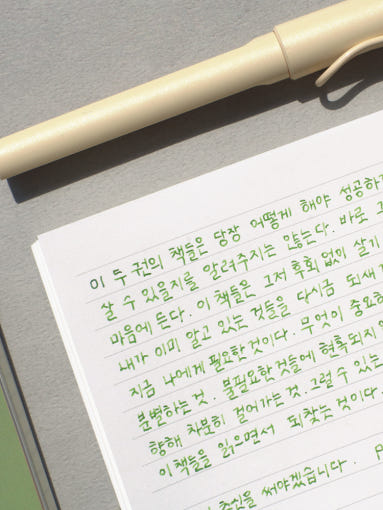 이 두 권의 책들은 당장 어떻게 해야 성공하
살 수 있을지를 알려주지는 않는다. 바로
마음에 든다. 이 책들은 그저 후회 없이 살기
내가 이미 알고 있는 것들을 다시금 되새
지금 나에게 필요한 것이다. 무엇이 중요
분별하는 것. 불필요한 것들에 현혹되지
향해 차분히 걸어가는 것. 그럴 수 있는
이 책들을 읽으면서 되찾는 것이다.
써야겠습니다. P